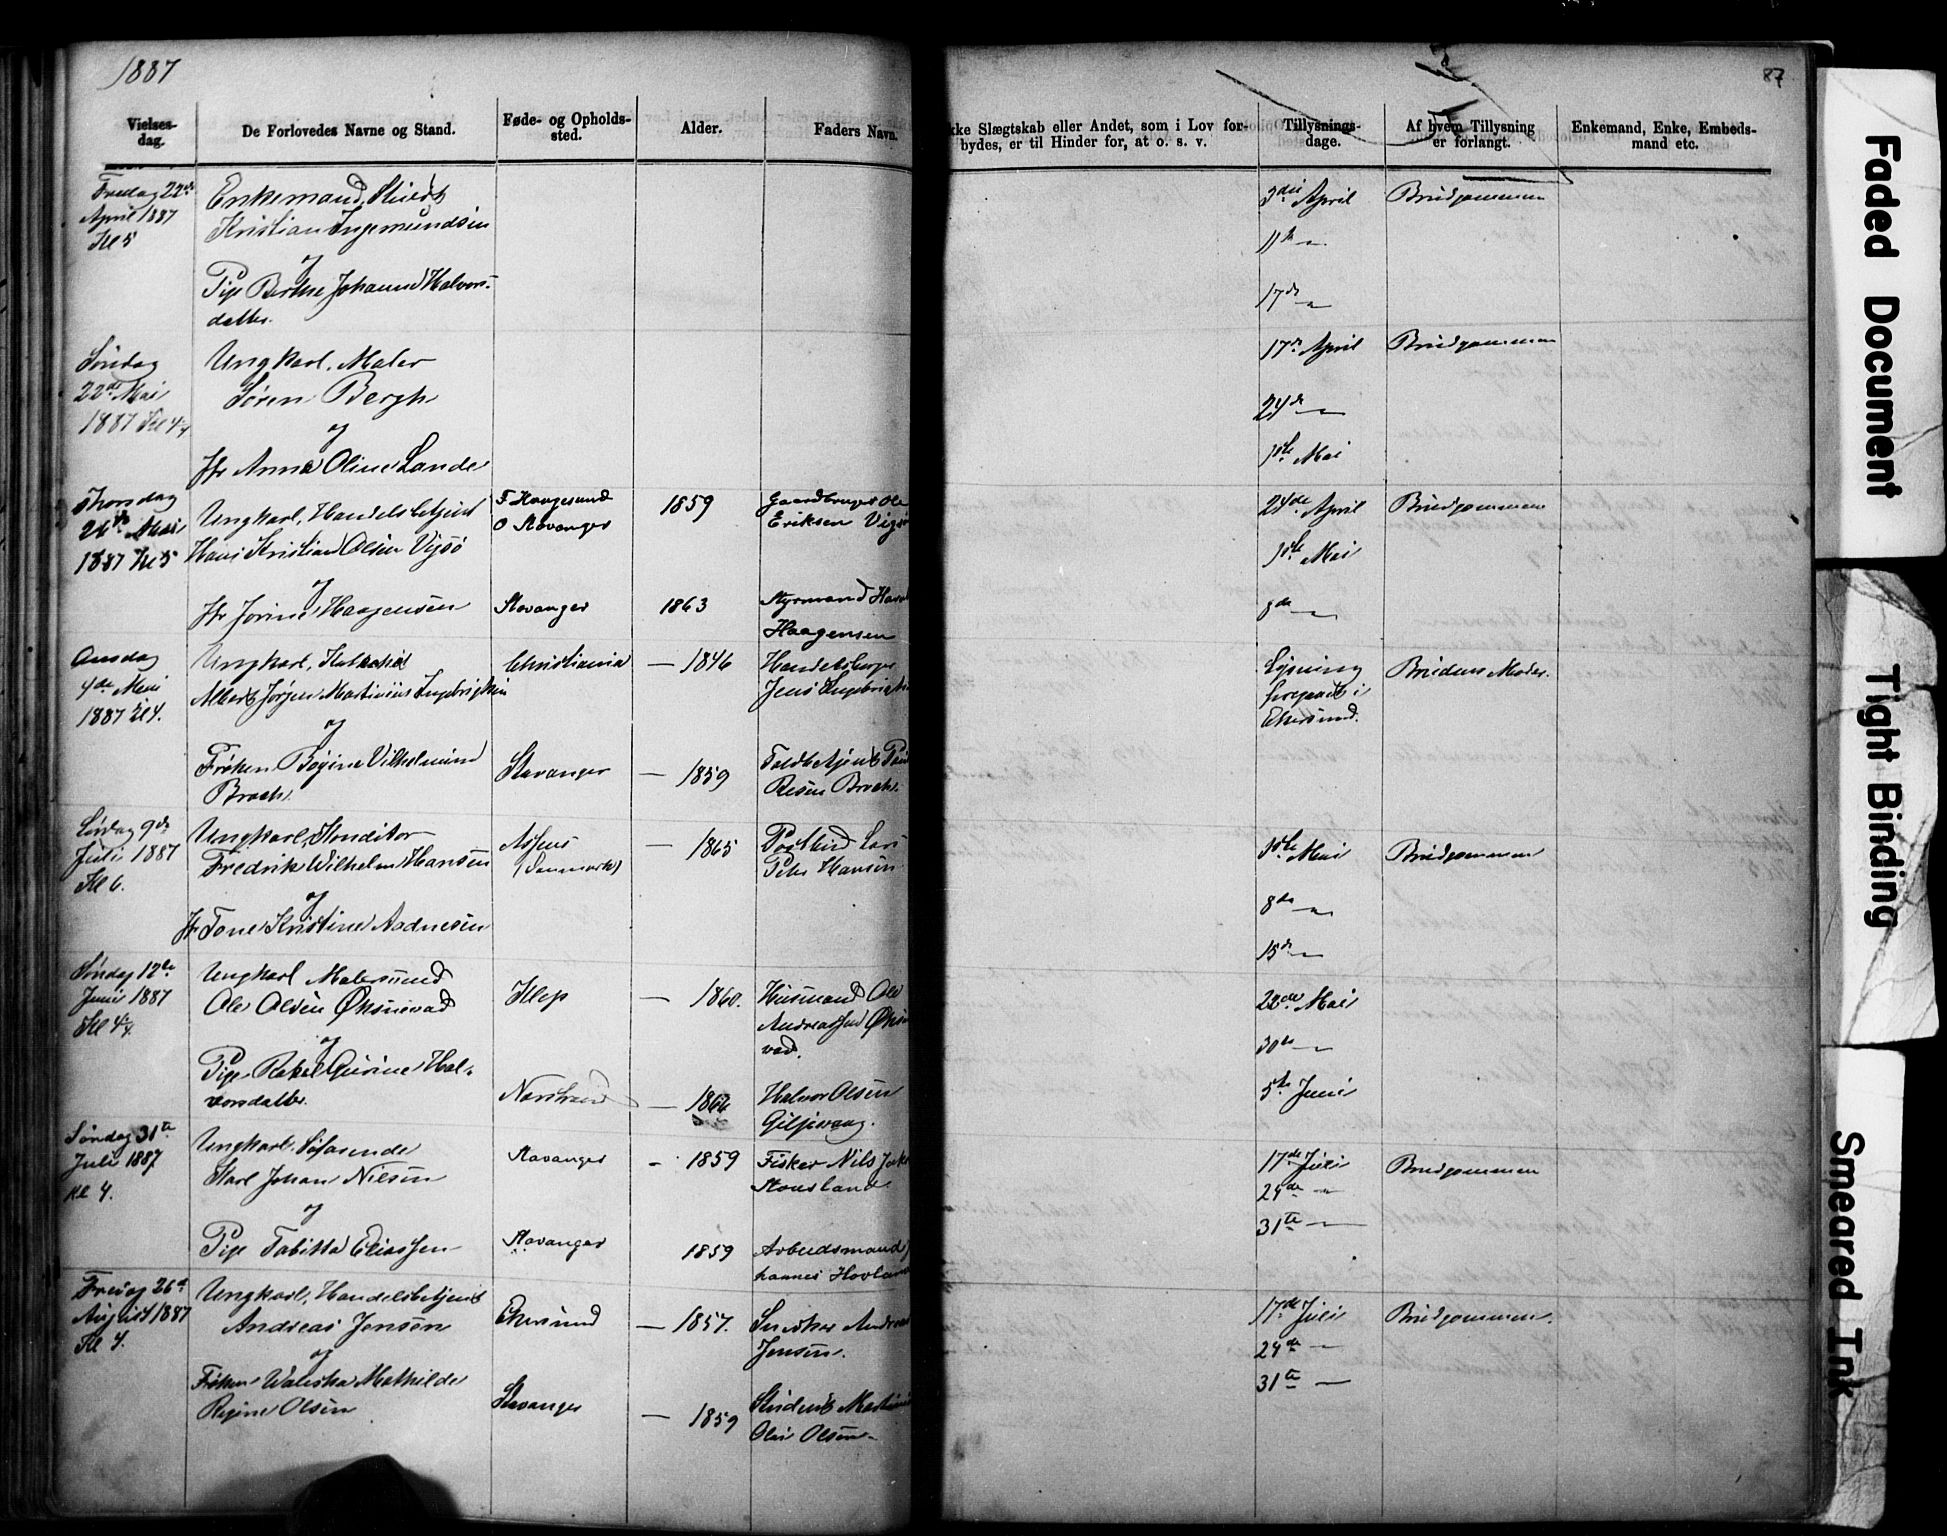 1887
87
Vielses-
dag.
De Forlovedes Navne og Stand.
Føde- og Opholds-
sted.
Alder.
Faders Navn.
kke Slægtskab eller Andet, som i Lov for-
bydes, er til Hinder for, at o. s. v.
Tillysnings-
dage.
Af hvem Tillysning
er forlangt.
Enkemand, Enke, Embeds-
mand etc.
Fredag 22de
April 1887
Kl 5
Enkemand,
Kristian Ingemundsen
og
Pige Berthe Johanne Halvors-
datter.
3die April
11te
17de
Brudgommen
Søndag
22de Mai
1887 Kl
Ungkarl, Maler
Søren Bergh
og
Fr Anna Oline Lande
17de April
24de
1ste Mai
Brudgommen
Thorsdag
26de Mai
1887 Kl 5
Ungkarl, Handelsbetjent
Hans Kristian Olsen Vigsø
og
Fr Jorine Haagensen
F Haugesund
O Stavanger
Stavanger
1859
1863
Gaardbruger Ole
Eriksen
Styrmand
Haagensen
24de April
1ste Mai
8de
Brudgommen
Onsdag
4de Mai
1887 Kl 4.
Ungkarl,
Albert Jørgen Martinius Ingebrigtsen
og
Frøken Bogine Vilhelmine
Broch
Christiania
Stavanger
— 1846
— 1859
Handelsborger
Jens
Toldbetjent
Resen Broch
Lysning
foregaaet i
Ekersund.
Brudens Moder.
Lørdag 9de
Juli 1887
Kl 6.
Ungkarl, Konditor
Fredrik Wilhelm Hansen
og
Fr Tone Kristine Aadnesen
Assens
(Danmark)
— 1865
Postbud Lars
Peter Hansen
1ste Mai
8de
15de
Brudgommen
Søndag 12te
Juni 1887
Kl
Ungkarl Malersvend
Ole Olsen Øksnevad
og
Pige Rakel Gurine Hal-
vorsdatter.
Klep
— 1860.
— 1866
Husmand Ole
Andreassen
vad.
Halvor Olsen
22de Mai
30de
5te Juni
Søndag 31te
Juli 1887
Kl 4.
Ungkarl, Søfarende
Karl Johan Nilsen
og
Pige Tabitta Eliassen
Stavanger
Stavanger
- 1859
1859
Fisker Nils
Stousland
Arbeidsmand
hannes
17de Juli
24de
31te —
Brudgommen
Fredag 26de
August 1887
Kl 4.
Ungkarl, Handelsbetjent
Andreas Jensen
og
Frøken Waleska Mathilde
Regine Olsen
Ekersund
Stavanger
— 1857.
— 1859
Snedker
Jensen.
Olai Olsen
17de Juli
24de —
31te —
Brudgommen.
Faded Document
Tight Binding
Smeared Ink